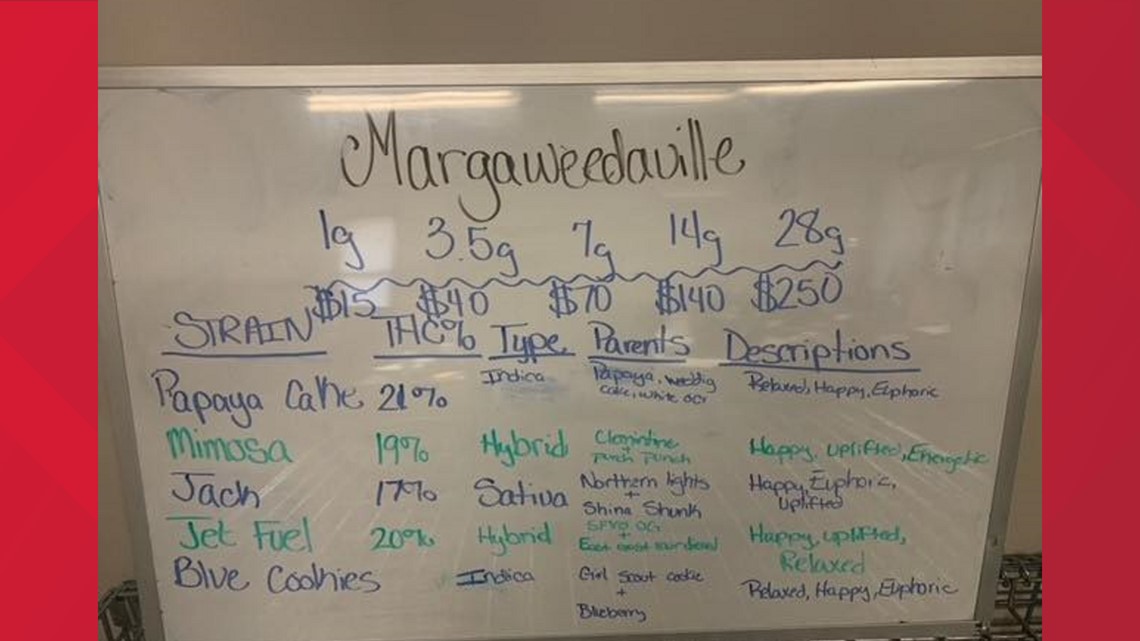 Margaweedaville
1g 3.5g 7g 14g 28g
$15 $40 $70 $140 $250
STRAIN THC% Type Parents Descriptions
Papaya Cake 21% Indica Papaya, weddig Relaxed, Happy, Euphoric
cake, white OG
Mimosa 19% Hybrid Clemintine Happy, uplifted, Energetic
+
Punch
Jack 17% Sativa Northern lights Happy, Euphoric,
+ uplifted
Shina Skunk
Jet Fuel 20% Hybrid SFVO OG Happy, uplifted,
+ Relaxed
East coast
Blue Cookies Indica Girl Scout cookie Relaxed, Happy, Euphoric
+
Blueberry